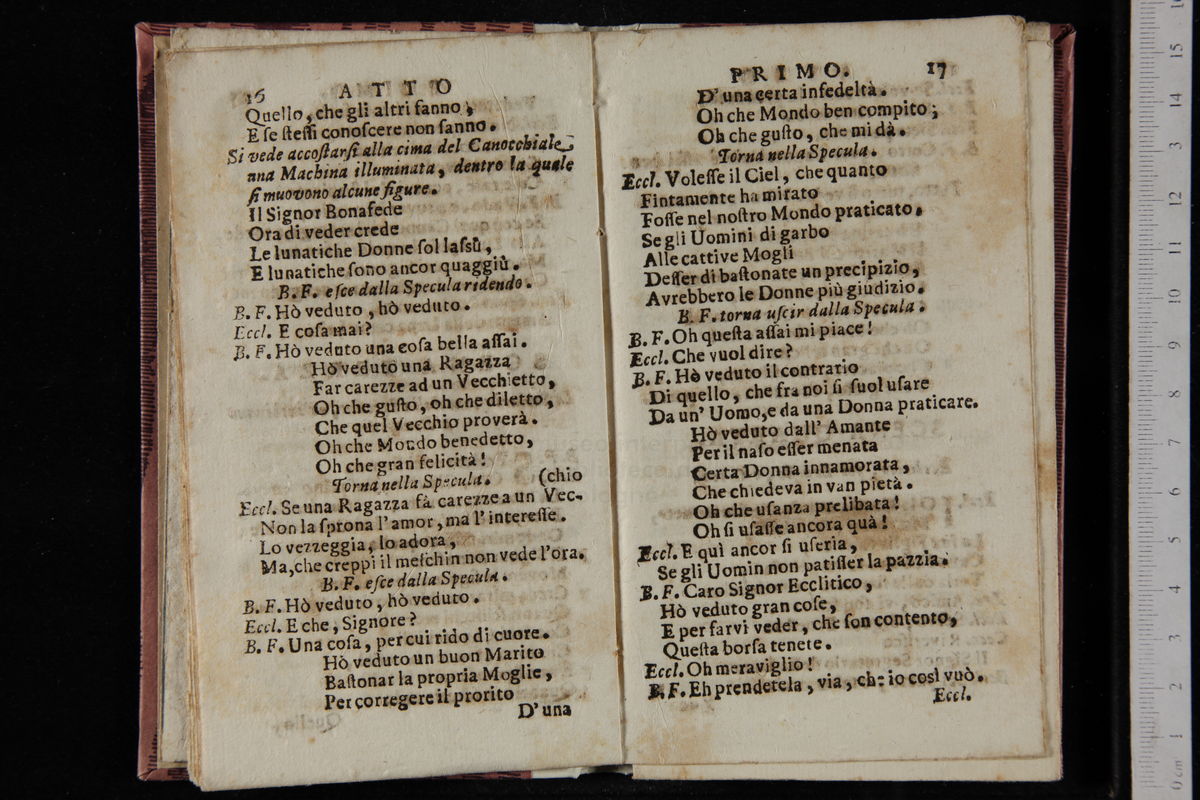 16 ATTO
Quello, che gli altri fanno,
E ſe ſteſſi conoſcere non ſanno.
Si vede accoſtarſi alla cima del Canocchiale
una Machina illuminata, dentro la quale
ſi muovono alcune figure.
Il Signor Bonafede
Ora di veder crede
Le lunatiche Donne ſol laſsù,
E lunatiche ſono ancor quaggiù.
B. F. eſce dalla Specula ridendo.
B. F. Hò veduto, hò veduto.
Eccl. E coſa mai?
B. F. Hò veduto una coſa bella aſſai.
Hò veduto una Ragazza
Far carezze ad un Vecchietto,
Oh che guſto, oh che diletto,
Che quel Vecchio proverà.
Oh che Mondo benedetto,
Oh che gran felicità!
Torna nella Specula. (chio
Eccl. Se una Ragazza fà carezze a un Vec-
Non la ſprona l'amor, ma l'intereſſe.
Lo vezzeggia, lo adora,
Ma, che creppi il meſchin non vede l'ora.
B. F. eſce dalla Specula.
B. F. Hò veduto, hò veduto.
Eccl. E che, Signore?
B. F. Una coſa, per cui rido di cuore.
Hò veduto un buon Marito
Baſtonar la propria Moglie,
Per corregere il prorito
D'una
PRIMO. 17
D'una certa infedeltà.
Oh che Mondo ben compito;
Oh che guſto, che mi dà.
Torna nella Specula.
Eccl. Voleſſe il Ciel, che quanto
Fintamente ha mirato
Foſſe nel noſtro Mondo praticato.
Se gli Uomini di garbo
Alle cattive Mogli
Deſſer di baſtonate un precipizio,
Avrebbero le Donne più giudizio.
B. F. torna uſcir dalla Specula.
B. F. Oh queſta aſſai mi piace!
Eccl. Che vuol dire?
B. F. Hò veduto il contrario
Di quello, che fra noi ſi ſuol uſare
Da un' Uomo, e da una Donna praticare.
Hò veduto dall' Amante
Per il naſo eſſer menata
Certa Donna innamorata,
Che chiedeva in van pietà.
Oh che uſanza prelibata!
Oh ſi uſaſſe ancora quà!
Eccl. E quì ancor ſi uſeria,
Se gli Uomin non patiſſer la pazzia.
B. F. Caro Signor Ecclitico,
Hò veduto gran coſe,
E per farvi veder, che ſon contento,
Queſta borſa tenete.
Eccl. Oh meraviglio!
B. F. Eh prendetela, via, che io così vuò.
Eccl.